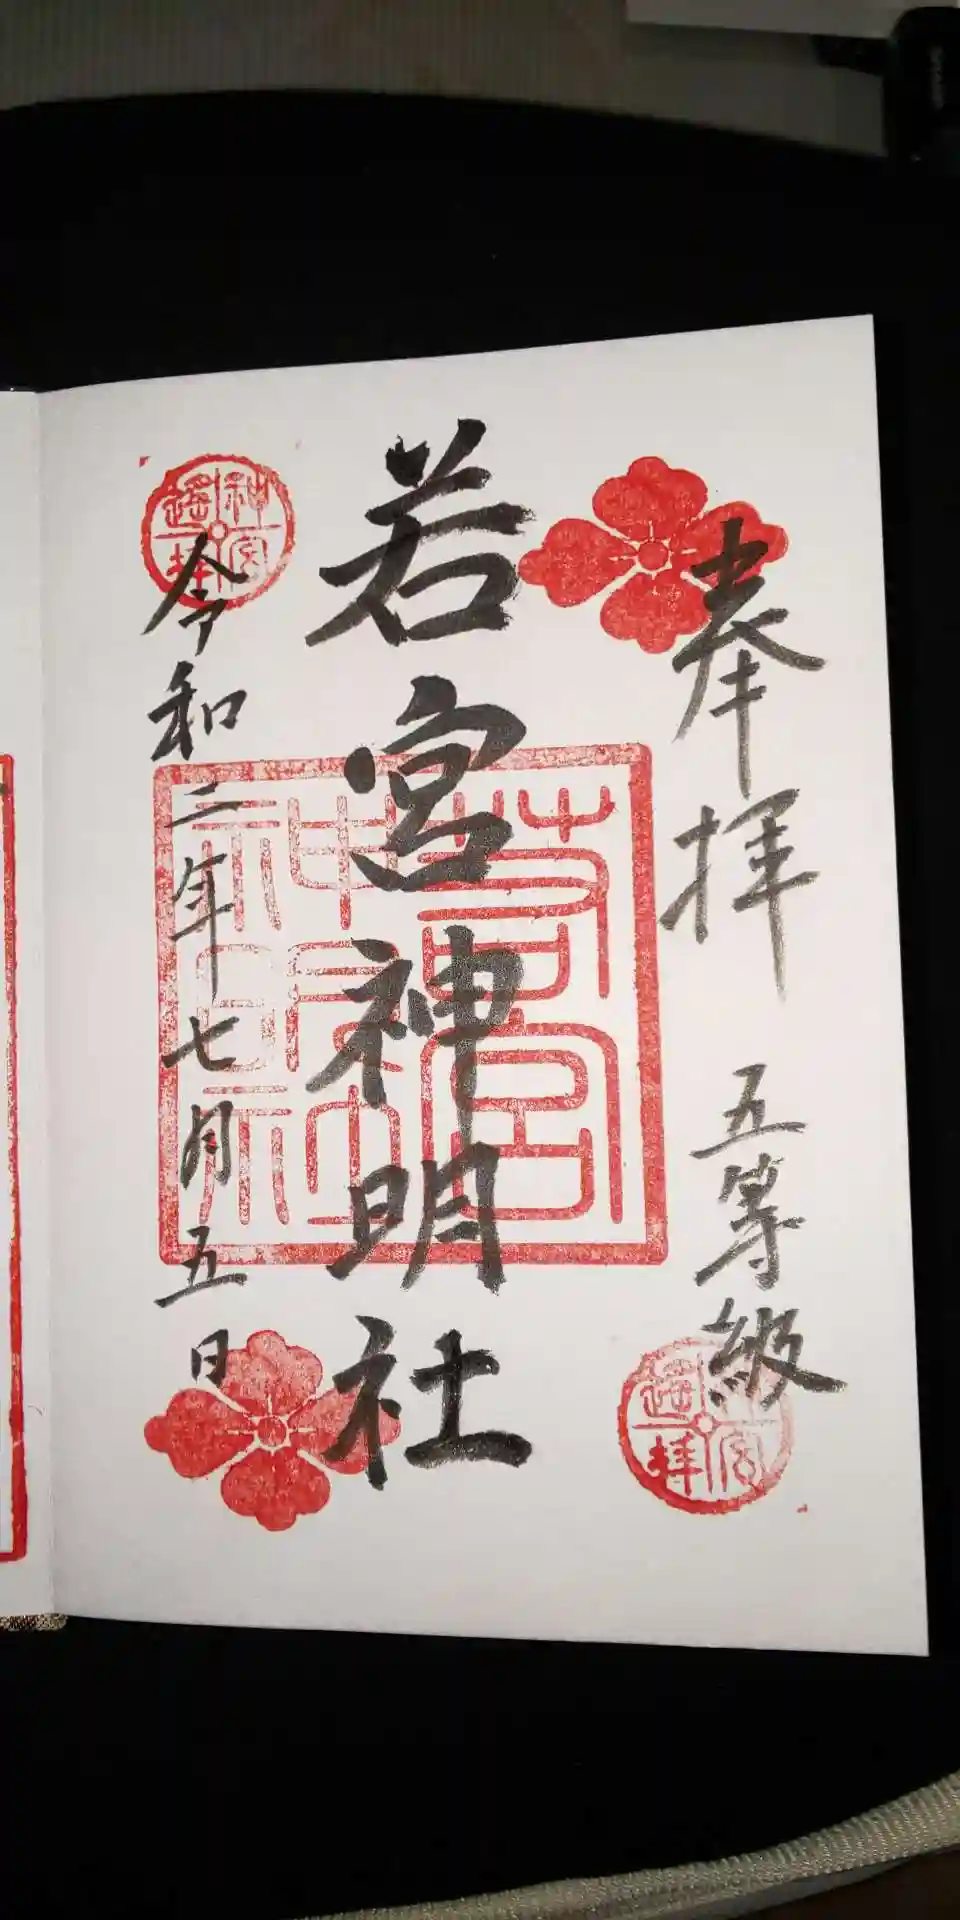 奉拝 五等級
若宮神明社
令和二年七月五日
若宮神明社
神宮遥拝
神宮遥拝